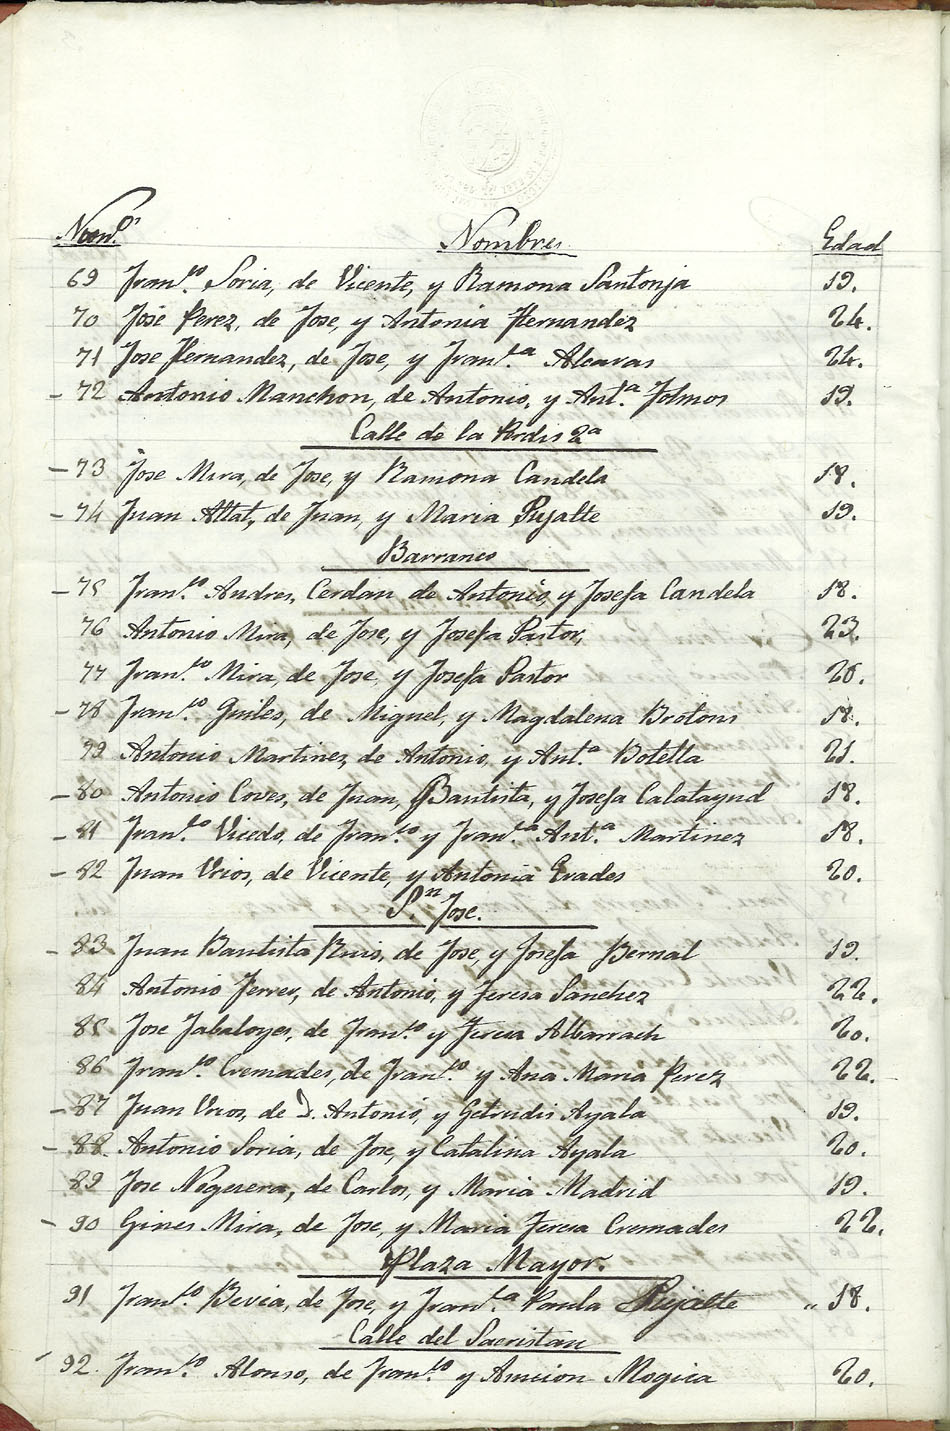 Num.os Nombres Edad
69 Fran.co Soria, de Vicente, y Ramona Santonja 19.
70 José Perez, de Jose, y Antonia Hernandez 24.
71 Jose Hernandez, de Jose, y Fran.ca Alcaras 24.
- 72 Antonio Manchon, de Antonio, y Ant.a Tolmos 19.
Calle de la Perdis 2a
- 73 Jose Mira, de Jose, y Ramona Candela 18.
- 74 Juan Altat, de Juan, y Maria Pujalte 19.
Barranco
- 75 Fran.co Andres, Cerdan de Antonio, y Josefa Candela 18.
76 Antonio Mira, de Jose, y Josefa Pastor, 23.
77 Fran.co Mira, de Jose, y Josefa Pastor 26.
- 78 Fran.co Guiles, de Miguel, y Magdalena Brotons 18.
79 Antonio Martinez, de Antonio, y Ant.a Botella 21.
- 80 Antonio Coves, de Juan, Bautista, y Josefa Calatayud 18.
- 81 Fran.co Vicedo, de Fran.co y Fran.ca Ant.a Martinez 18.
- 82 Juan Vrios, de Vicente, y Antonia Evades 20.
S.n Jose.
- 83 Juan Bautista Ruis, de Jose, y Josefa Bernal 19.
84 Antonio Ferres, de Antonio, y Teresa Sanchez 22.
85 Jose Jabaloyes, de Fran.co y Teresa Albarrach 20.
86 Fran.co Cremades, de Fran.co y Ana Maria Perez 22.
- 87 Juan Vrios, de D. Antonio, y Getrudis Ayala 19.
- 88. Antonio Soria, de Jose, y Catalina Ayala 20.
89 Jose Noguera, de Carlos, y Maria Madrid 19.
- 90 Gines Mira, de Jose, y Maria Teresa Cremades 22.
Plaza Mayor.
91 Fran.co Bevia, de Jose, y Fran.ca Paula Pujalte " 18.
Calle del Sacristan
92. Fran.co Alonso, de Fran.co y Asuncion Mogica 20.